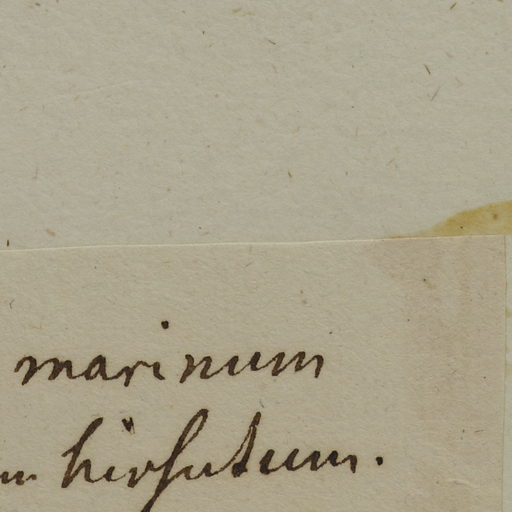 marinum
hirsutum.